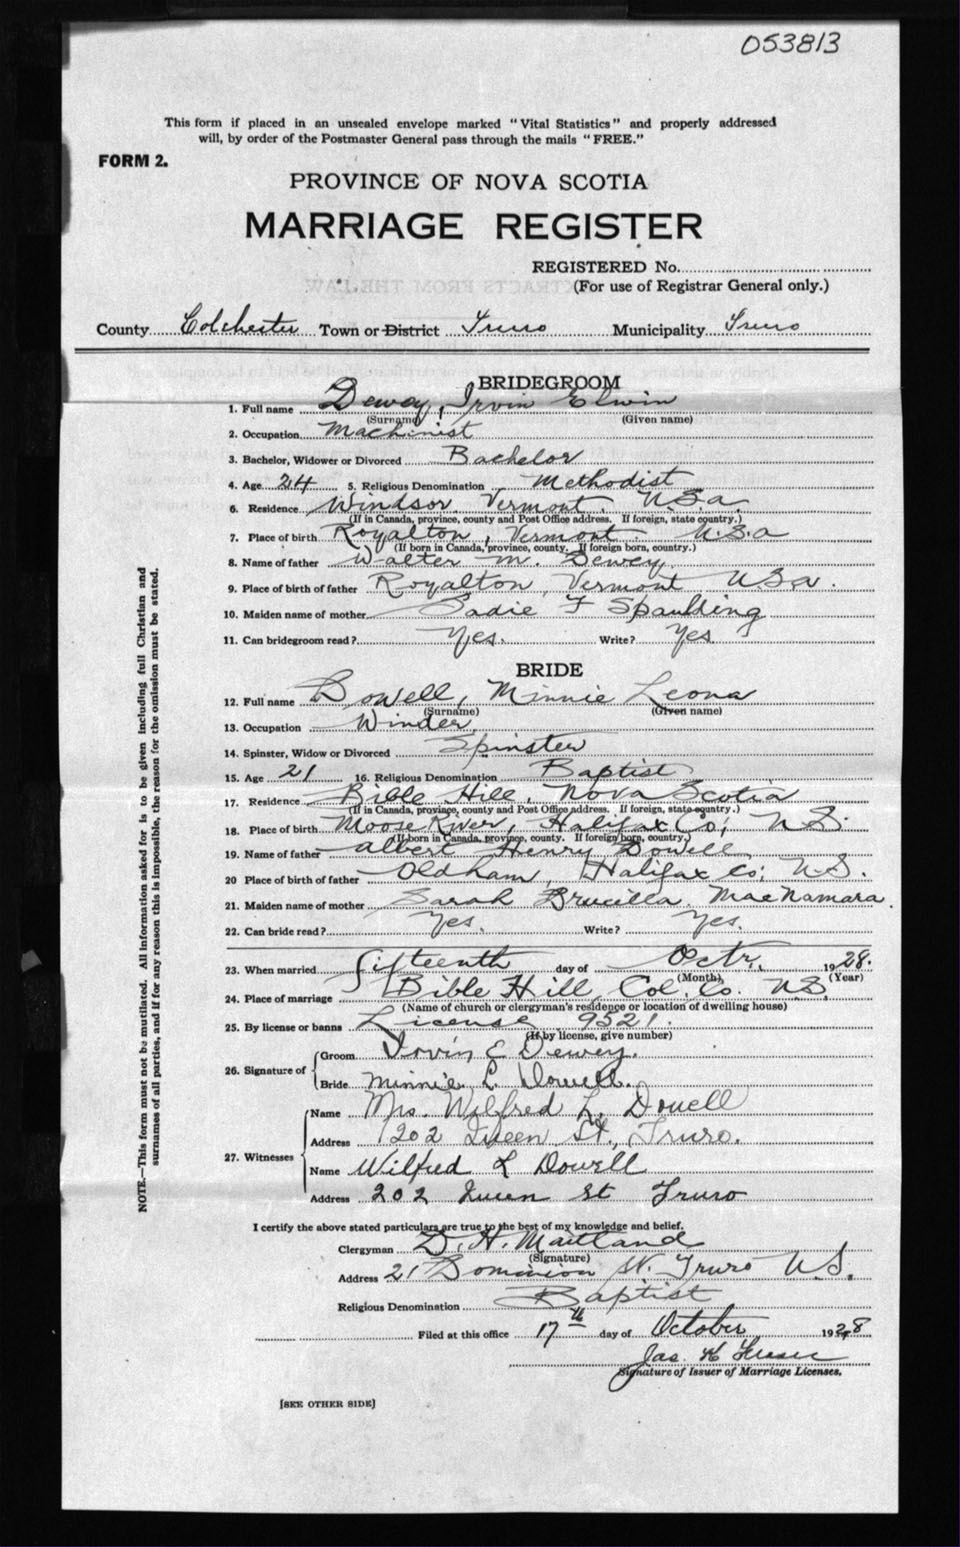 053813
This form if placed in an unsealed envelope marked "Vital Statistics" and properly addressed
will, by order of the Postmaster General pass through the mails "FREE."
FORM 2.
PROVINCE OF NOVA SCOTIA
MARRIAGE REGISTER
REGISTERED No.
(For use of Registrar General only.)
County Colchester Town or District Truro Municipality Truro
BRIDEGROOM
1. Full name Dewey, Irvin Elwin
(Surname) (Given name)
2. Occupation Machinist
3. Bachelor, Widower or Divorced Bachelor
4. Age 24 5. Religious Denomination Methodist
6. Residence Windsor. Vermont. U.S.a.
(If in Canada, province, county and Post Office address. If foreign, state country.)
7. Place of birth Royalton, Vermont. U.S.a
(If born in Canada, province, county. If foreign born, country.)
8. Name of father Walter M. Dewey.
9. Place of birth of father Royalton, Vermont U.S.a.
10. Maiden name of mother Sadie F Spaulding
11. Can bridegroom read? Yes. Write? Yes
BRIDE
12. Full name Dowell, Minnie Leona
(Surname) (Given name)
13. Occupation Winder
14. Spinster, Widow or Divorced Spinster
15. Age 21 16. Religious Denomination Baptist
17. Residence Bible Hill, Nova Scotia
(If in Canada, province, county and Post Office address. If foreign, state country.)
18. Place of birth Moose River, Halifax Co; N.S.
(If born in Canada, province, county. If foreign born, country.)
19. Name of father Albert Henry Dowell
20 Place of birth of father Oldham, Halifax Co; N.S.
21. Maiden name of mother Sarah Drucilla MacNamara.
22. Can bride read? Yes. Write? Yes.
23. When married Fifteenth day of Octr. 1928.
(Month) (Year)
24. Place of marriage Bible Hill, Col. Co. N.S.
(Name of church or clergyman's residence or location of dwelling house)
25. By license or banns License 9521.
(If by license, give number)
26. Signature of
Groom Irvin E Dewey.
Bride Minnie L. Dowell.
27. Witnesses
Name Mrs. Wilfred L. Dowell
Address 202 Queen St., Truro.
Name Wilfred L Dowell
Address 202 Queen St Truro
I certify the above stated particulars are true to the best of my knowledge and belief.
Clergyman D. H. Maitland
(Signature)
Address 21 Dominion St. Truro N.S.
Religious Denomination Baptist
Filed at this office 17th day of October 1928
Jas. H
Signature of Issuer of Marriage Licenses.
[SEE OTHER SIDE]
NOTE.—This form must not be mutilated. All information asked for is to be given including full Christian and
surnames of all parties, and if for any reason this is impossible, the reason for the omission must be stated.